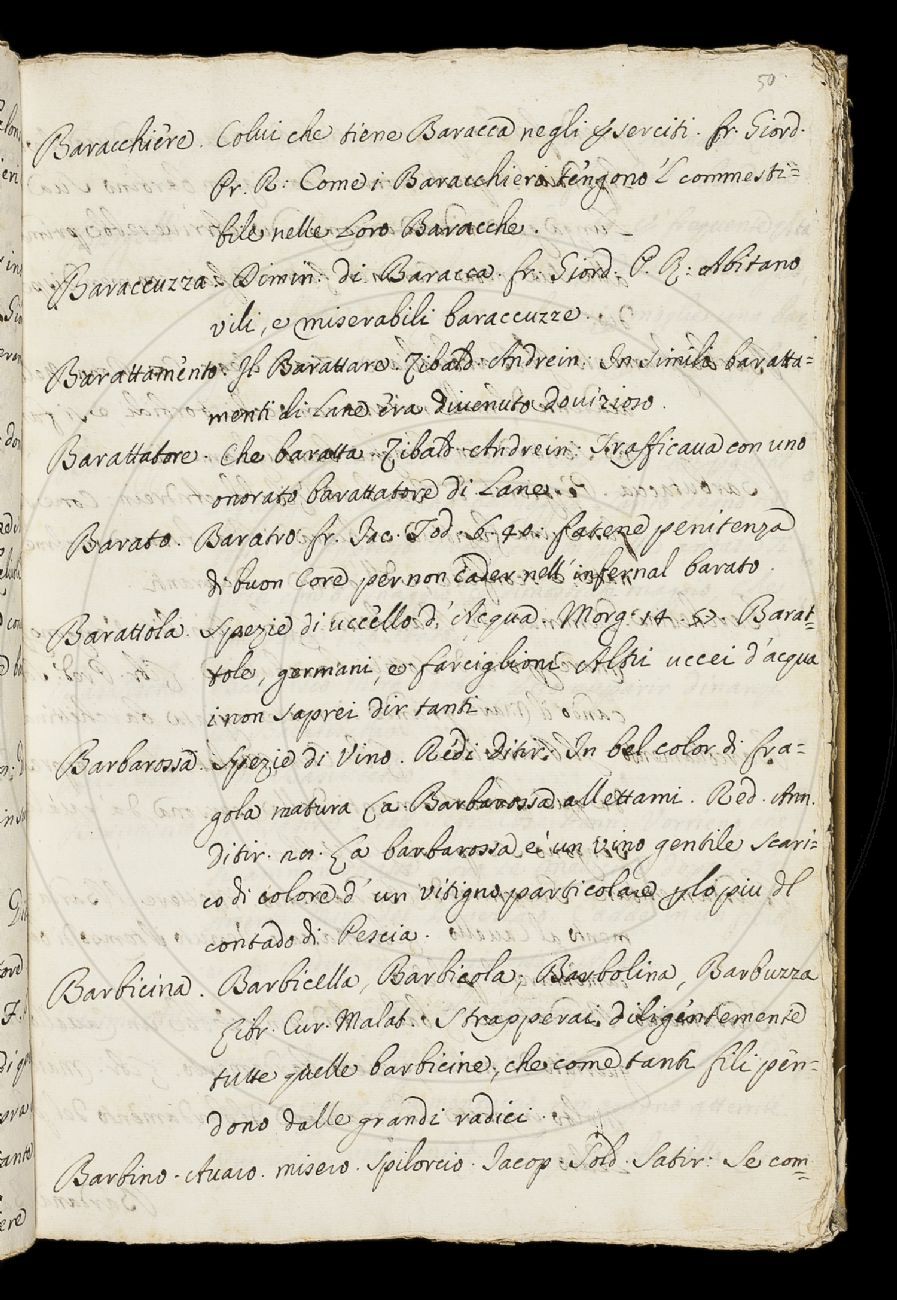 50
Baracchiere. Colui che tiene Baracca negli Eserciti. fr. Giord.
Pr. R: Come i Baracchieri téngono 'l commesti=
bile nelle Loro Baracche.
Baraccuzza. Dimin: di Baracca. fr: Giord. P. R: Abitano
vili, e miserabili baraccuzze.
Barattamento. Il Barattare. Zibald. Andrein: In simile baratta=
menti di Lane era divenuto dovizioso.
Barattatore. Che baratta. Zibald. Andrein: Trafficava con uno
onorato barattatore di Lane.
Barato. Baratro. fr. Jac. Tod. 6. 40. fatene penitenza
di buon Core per non cader nell' infernal barato.
Barattola. Spezie di uccello d' Acqua. Morg. 14. 57. Barat=
tole, germani, e farciglioni Altri uccei d'acqua
i non saprei dir tanti
Barbarossa. Spezie di Vino. Redi Ditir: In bel color di fra=
gola matura La Barbarossa allettami. Red. Ann.
Ditir. no. La barbarossa e' un vino gentile scari=
co di colore d' un vitigno particolare p lo piu dl
contado di Pescia.
Barbicina. Barbicella, Barbicola, Barbolina, Barbuzza
Libr. Cur. Malat. Strapperai diligentemente
tutte quelle barbicine, che come tanti fili pen=
dono dalle grandi radici.
Barbino. Avaro. misero. Spilorcio. Jacop. Sold. Satir: Se com=